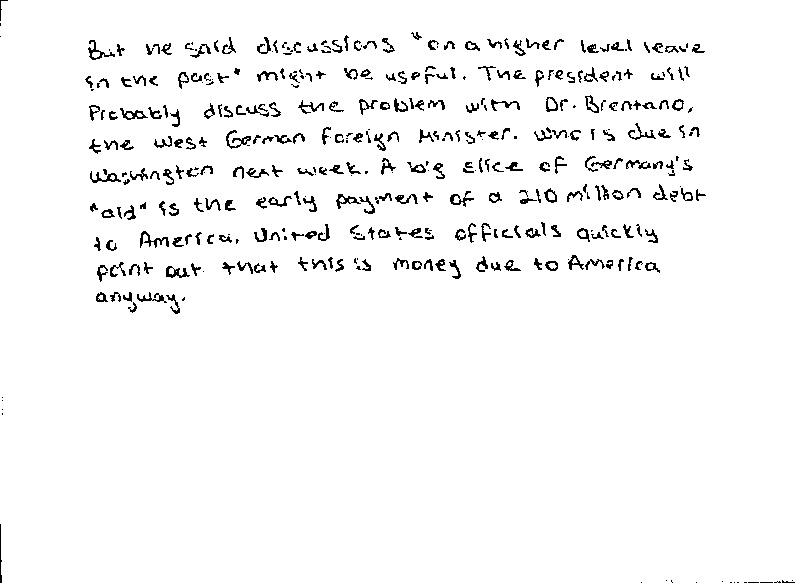 But he said discussions "on a higher level leave
in the past" might be useful. The president will
Probably discuss the problem with Dr. Brentano,
the West German Foreign Minister. who is due in
Washington next week. A big slice of Germany's
"aid" is the early payment of a 210 million debt
to America. United States officials quickly
point out that this is money due to America
anyway.